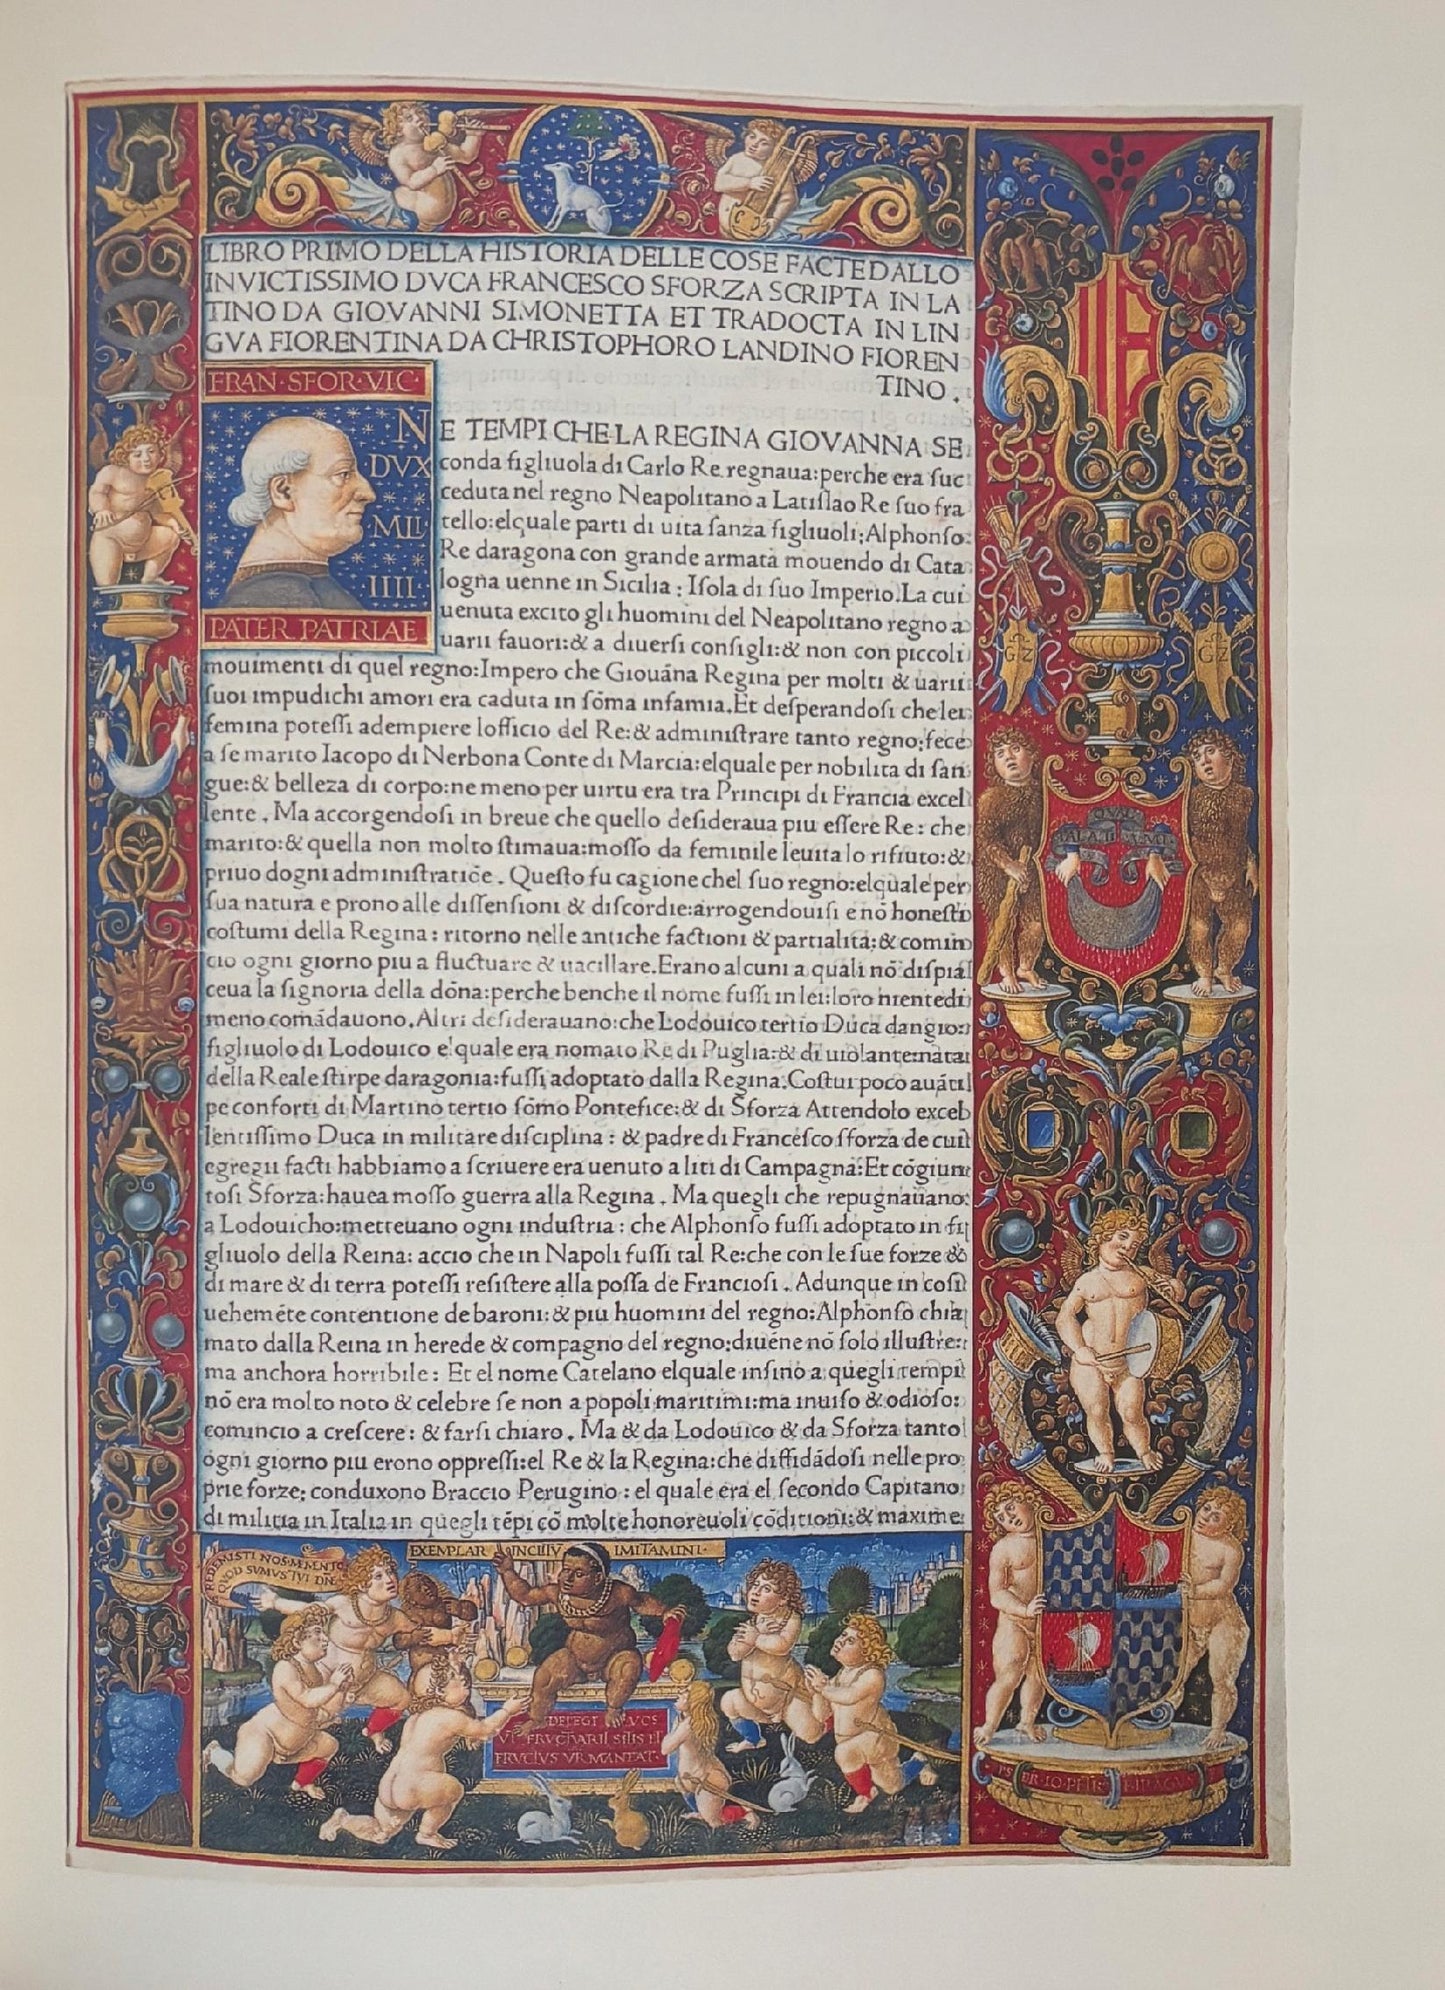 LIBRO PRIMO DELLA HISTORIA DELLE COSE FACTE DALLO
INVICTISSIMO DVCA FRANCESCO SFORZA SCRIPTA IN LA
TINO DA GIOVANNI SIMONETTA ET TRADOCTA IN LIN
GVA FIORENTINA DA CHRISTOPHORO LANDINO FIOREN
TINO.
FRAN·SFOR·VIC·
N
DVX
MLI·
IIII·
PATER PATRIAE
E TEMPI CHE LA REGINA GIOVANNA SE
conda figliuola di Carlo Re regnaua:perche era ſuc
ceduta nel regno Neapolitano a Latiſlao Re ſuo fra
tello:elquale parti di uita ſanza figliuoli:Alphonſo
Re daragona con grande armata mouendo di Cata
logna uenne in Sicilia: Iſola di ſuo Imperio.La cui
uenuta excito gli huomini del Neapolitano regno a
uarii fauori:& a diuerſi conſigli:& non con piccoli
mouimenti di quel regno:Impero che Giouána Regina per molti & uarii
ſuoi impudichi amori era caduta in ſōma infamia.Et deſperandoſi che lei
femina poteſſi adempiere lofficio del Re:& adminiſtrare tanto regno:fece
a ſe marito Iacopo di Nerbona Conte di Marcia:elquale per nobilita di ſan
gue:& belleza di corpo:ne meno per uirtu era tra Principi di Francia excel
lente. Ma accorgendoſi in breue che quello deſideraua piu eſſere Re: che
marito:& quella non molto ſtimaua:moſſo da feminile leuita lo rifiuto:&
priuo dogni adminiſtratiōe. Queſto fu cagione chel ſuo regno:elquale per
ſua natura e prono alle diſſenſioni & diſcordie:arrogendouiſi e nō honeſti
coſtumi della Regina: ritorno nelle antiche factioni & partialita:& comin
cio ogni giorno piu a fluctuare & uacillare.Erano alcuni a quali nō diſpia
ceua la ſignoria della dōna:perche benche il nome fuſſi in lei:loro niente di
meno comādauono.Altri deſiderauano:che Lodouico tertio Duca dangio:
figliuolo di Lodouico elquale era nomato Re di Puglia:& di uiolante:nata
della Reale ſtirpe daragonia:fuſſi adoptato dalla Regina.Coſtui poco auāti
pe conforti di Martino tertio ſōmo Pontefice:& di Sforza Attendolo excel
lentiſſimo Duca in militare diſciplina: & padre di Franceſco ſforza de cui
egregii facti habbiamo a ſcriuere era uenuto a liti di Campagna:Et cōgiun
toſi Sforza:hauea moſſo guerra alla Regina. Ma quegli che repugnauano
a Lodouicho:metteuano ogni induſtria: che Alphonſo fuſſi adoptato in fi
gliuolo della Reina: accio che in Napoli fuſſi tal Re:che con le ſue forze &
di mare & di terra poteſſi reſiſtere alla poſſa de Francioſi. Adunque in coſi
uehemēte contentione de baroni:& piu huomini del regno:Alphonſo chia
mato dalla Reina in herede & compagno del regno:diuēne nō ſolo illuſtre:
ma anchora horribile: Et el nome Catelano elquale inſino a quegli tempi
nō era molto noto & celebre ſe non a popoli maritimi:ma inuiſo & odioſo:
comincio a creſcere: & farſi chiaro. Ma & da Lodouico & da Sforza tanto
ogni giorno piu erono oppreſſi:el Re & la Regina:che diffidādoſi nelle pro
prie forze: conduxono Braccio Perugino: el quale era el ſecondo Capitano
di militia in Italia in quegli tēpi cō molte honoreuoli cōditioni:& maxime
G Z
G Z
QVAL
REDEMISTI NOS·MMENTO
QVOD SVMVS TVI DNE
EXEMPLAR IMITAMINI·
DELEGI VOS
VT FRVCTVM
FRVCTVS VR MANEAT·